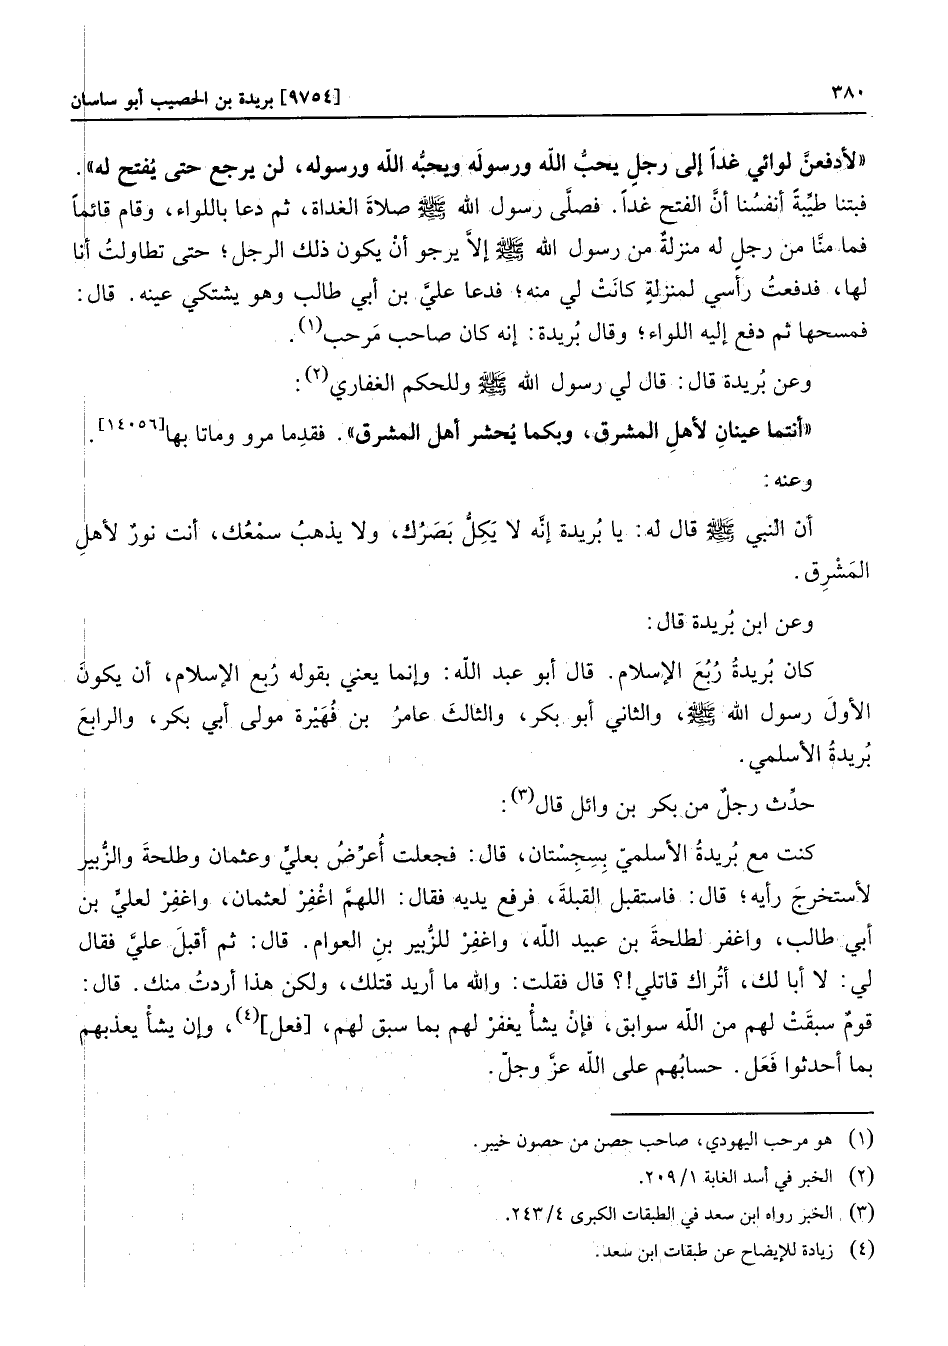 ٣٨٠
[٩٧٥٤] بريدة بن الحصيب أبو ساسان
«لأدفعنَّ لوائي غداً إلى رجلٍ يحبُّ اللّه ورسولَه ويحبُّه اللّه ورسوله، لن يرجع حتى يُفتح له».
فبتنا طيِّبةً أنفسُنا أنَّ الفتح غداً. فصلَّى رسول الله ﷺ صلاةَ الغداة، ثم دعا باللواء، وقام قائماً
فما منَّا من رجلٍ له منزلةٌ من رسول الله ﷺ إلاَّ يرجو أنْ يكون ذلك الرجل؛ حتى تطاولتُ أنا
لها، فدفعتُ رأسي لمنزلةٍ كانَتْ لي منه؛ فدعا عليَّ بن أبي طالب وهو يشتكي عينه. قال:
فمسحها ثم دفع إليه اللواء؛ وقال بُريدة: إنه كان صاحب مَرحب(١).
وعن بُريدة قال: قال لي رسول الله ﷺ وللحكم الغفاري(٢):
«أنتما عينانِ لأهلِ المشرق، وبكما يُحشر أهل المشرق». فقدِما مرو وماتا بها[١٤٠٥٦].
وعنه:
أن النبي ﷺ قال له: يا بُريدة إنَّه لا يَكِلُّ بَصَرُك، ولا يذهبُ سمْعُك، أنت نورٌ لأهلِ
المَشْرِق.
وعن ابن بُريدة قال:
كان بُريدةُ رُبُعَ الإسلام. قال أبو عبد اللّه: وإنما يعني بقوله رُبع الإسلام، أن يكونَ
الأولَ رسول الله ﷺ، والثاني أبو بكر، والثالثَ عامرُ بن فُهَيْرة مولى أبي بكر، والرابعَ
بُريدةُ الأسلمي.
حدِّث رجلٌ من بكر بن وائل قال(٣):
كنت مع بُريدةُ الأسلميّ بِسِجِسْتان، قال: فجعلت أُعرِّضُ بعليٍّ وعثمان وطلحةَ والزُّبير
لأستخرجَ رأيه؛ قال: فاستقبل القبلةَ، فرفع يديه فقال: اللهمَّ اغْفِرْ لعثمان، واغفِرْ لعليِّ بن
أبي طالب، واغفر لطلحةَ بن عبيد اللّه، واغفِرْ للزُّبير بنِ العوام. قال: ثم أقبلَ عليَّ فقال
لي: لا أبا لك، أتُراك قاتلي!؟ قال فقلت: والله ما أريد قتلك، ولكن هذا أردتُ منك. قال:
قومٌ سبقَتْ لهم من اللّه سوابق، فإنْ يشأْ يغفرْ لهم بما سبق لهم، [فعل](٤)، وإن يشأْ يعذبهم
بما أحدثوا فَعَل. حسابُهم على اللّه عزَّ وجلّ.
(١) هو مرحب اليهودي، صاحب حصن من حصون خيبر.
(٢) الخبر في أسد الغابة ٢٠٩/١.
(٣) الخبر رواه ابن سعد في الطبقات الكبرى ٢٤٣/٤.
(٤) زيادة للإيضاح عن طبقات ابن سعد.